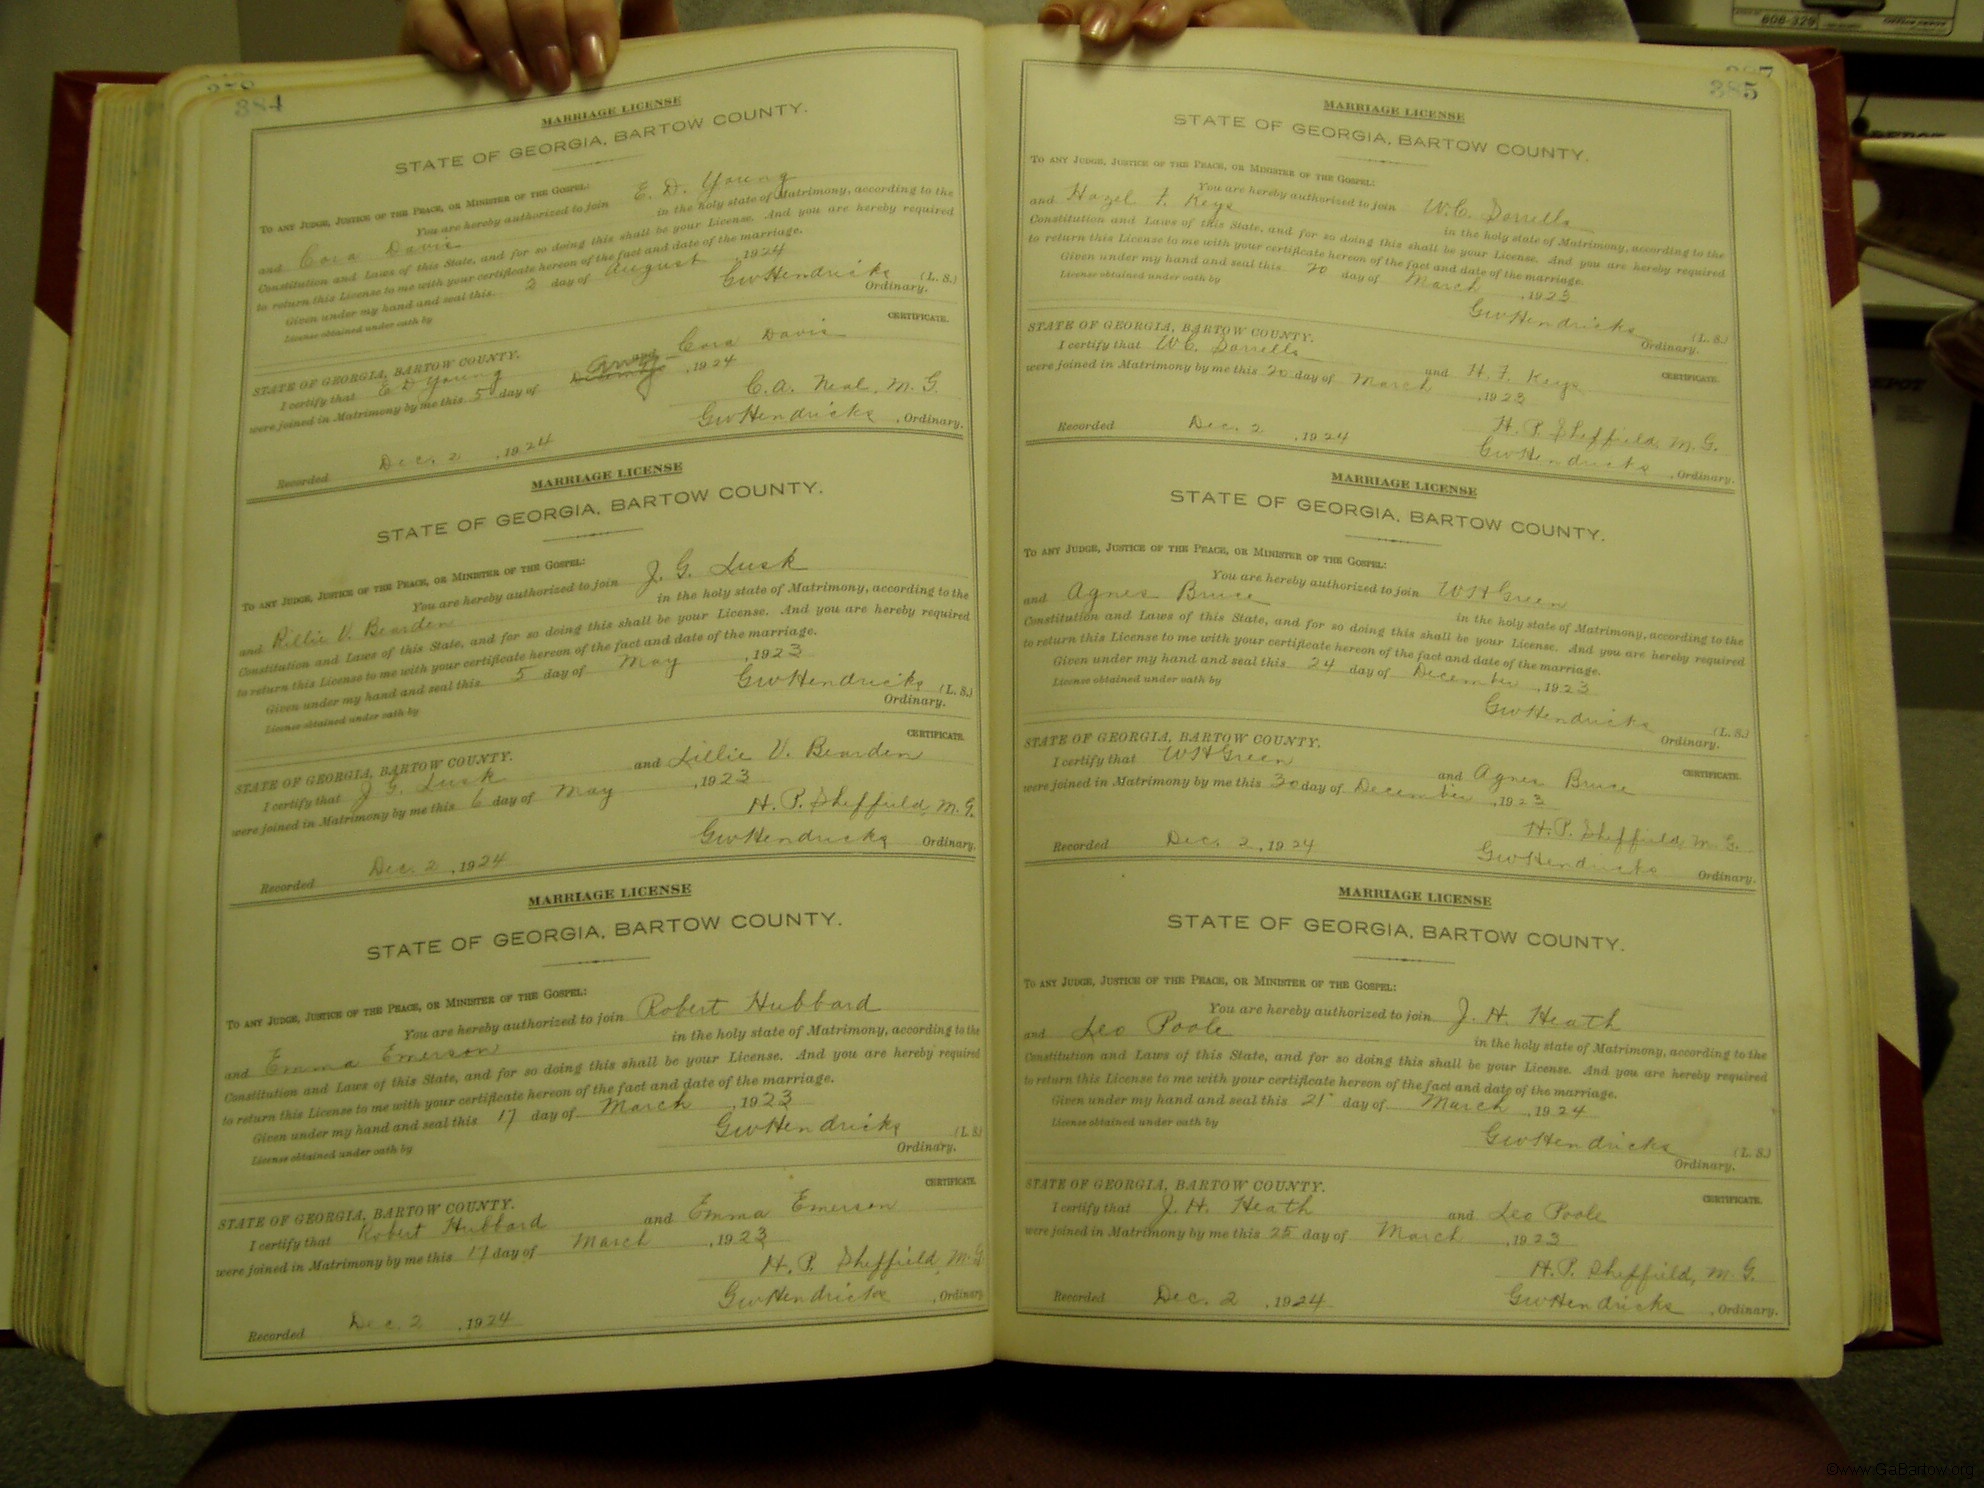 384
MARRIAGE LICENSE
STATE OF GEORGIA, BARTOW COUNTY.
To any Judge, Justice of the Peace, or Minister of the Gospel:
You are hereby authorized to join E. D. Young
and Cora Davis in the holy state of Matrimony, according to the
Constitution and Laws of this State, and for so doing this shall be your License. And you are hereby required
to return this License to me with your certificate hereon of the fact and date of the marriage.
Given under my hand and seal this 2 day of August, 1924
License obtained under oath by GW Hendricks (L. S.)
Ordinary.
CERTIFICATE.
STATE OF GEORGIA, BARTOW COUNTY.
I certify that E D Young and Cora Davis
were joined in Matrimony by me this 5 day of Aug, 1924
C. A. Neal, M. G.
Recorded Dec. 2, 1924 GW Hendricks, Ordinary.
MARRIAGE LICENSE
STATE OF GEORGIA, BARTOW COUNTY.
To any Judge, Justice of the Peace, or Minister of the Gospel:
You are hereby authorized to join J. G. Lusk
and Lillie V. Bearden in the holy state of Matrimony, according to the
Constitution and Laws of this State, and for so doing this shall be your License. And you are hereby required
to return this License to me with your certificate hereon of the fact and date of the marriage.
Given under my hand and seal this 5 day of May, 1923
License obtained under oath by GW Hendricks (L. S.)
Ordinary.
CERTIFICATE.
STATE OF GEORGIA, BARTOW COUNTY.
I certify that J G. Lusk and Lillie V. Bearden
were joined in Matrimony by me this 6 day of May, 1923
H. P. Sheffield, M. G.
Recorded Dec. 2, 1924 GW Hendricks Ordinary.
MARRIAGE LICENSE
STATE OF GEORGIA, BARTOW COUNTY.
To any Judge, Justice of the Peace, or Minister of the Gospel:
You are hereby authorized to join Robert Hubbard
and Emma Emerson in the holy state of Matrimony, according to the
Constitution and Laws of this State, and for so doing this shall be your License. And you are hereby required
to return this License to me with your certificate hereon of the fact and date of the marriage.
Given under my hand and seal this 17 day of March, 1923
License obtained under oath by GW Hendricks (L. S.)
Ordinary.
CERTIFICATE.
STATE OF GEORGIA, BARTOW COUNTY.
I certify that Robert Hubbard and Emma Emerson
were joined in Matrimony by me this 17 day of March, 1923
H. P. Sheffield, M. G.
Recorded Dec. 2, 1924 GW Hendricks, Ordinary
385
MARRIAGE LICENSE
STATE OF GEORGIA, BARTOW COUNTY.
To any Judge, Justice of the Peace, or Minister of the Gospel:
You are hereby authorized to join W. C. Sorrells
and Hazel F. Keys in the holy state of Matrimony, according to the
Constitution and Laws of this State, and for so doing this shall be your License. And you are hereby required
to return this License to me with your certificate hereon of the fact and date of the marriage.
Given under my hand and seal this 20 day of March, 1923
License obtained under oath by GW Hendricks (L. S.)
Ordinary.
CERTIFICATE.
STATE OF GEORGIA, BARTOW COUNTY.
I certify that W C. Sorrells and H. F. Keys
were joined in Matrimony by me this 20 day of March, 1923
H. P. Sheffield, M. G.
Recorded Dec. 2, 1924 GW Hendricks, Ordinary.
MARRIAGE LICENSE
STATE OF GEORGIA, BARTOW COUNTY.
To any Judge, Justice of the Peace, or Minister of the Gospel:
You are hereby authorized to join W H Green
and Agnes Bruce in the holy state of Matrimony, according to the
Constitution and Laws of this State, and for so doing this shall be your License. And you are hereby required
to return this License to me with your certificate hereon of the fact and date of the marriage.
Given under my hand and seal this 24 day of December, 1923
License obtained under oath by GW Hendricks (L. S.)
Ordinary.
CERTIFICATE.
STATE OF GEORGIA, BARTOW COUNTY.
I certify that W H Green and Agnes Bruce
were joined in Matrimony by me this 30 day of December, 1923
H. P. Sheffield, M. G.
Recorded Dec. 2, 1924 GW Hendricks Ordinary.
MARRIAGE LICENSE
STATE OF GEORGIA, BARTOW COUNTY.
To any Judge, Justice of the Peace, or Minister of the Gospel:
You are hereby authorized to join J. H. Heath
and Leo Poole in the holy state of Matrimony, according to the
Constitution and Laws of this State, and for so doing this shall be your License. And you are hereby required
to return this License to me with your certificate hereon of the fact and date of the marriage.
Given under my hand and seal this 21 day of March, 1924
License obtained under oath by GW Hendricks (L. S.)
Ordinary.
CERTIFICATE.
STATE OF GEORGIA, BARTOW COUNTY.
I certify that J. H. Heath and Leo Poole
were joined in Matrimony by me this 25 day of March, 1923
H. P. Sheffield, M. G.
Recorded Dec. 2, 1924 GW Hendricks, Ordinary.
606-329
©www.GaBartow.org